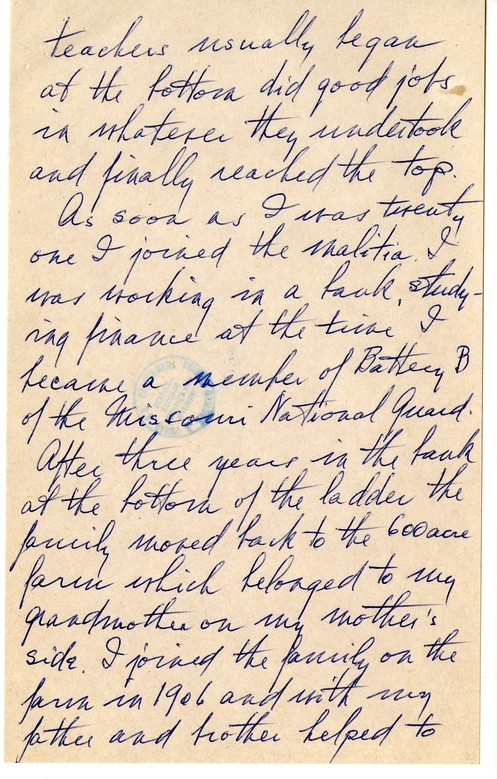 teachers usually began
at the bottom did good jobs
in whatever they undertook
and finally reached the top.
As soon as I was twenty
one I joined the malitia. I
was working in a bank, study-
ing finance at the time I
became a member of Battery B
of the Missouri National Guard.
After three years in the bank
at the bottom of the ladder the
family moved back to the 600 acre
farm which belonged to my
grandmother on my mother's
side. I joined the family on the
farm in 1906 and with my
father and brother helped to